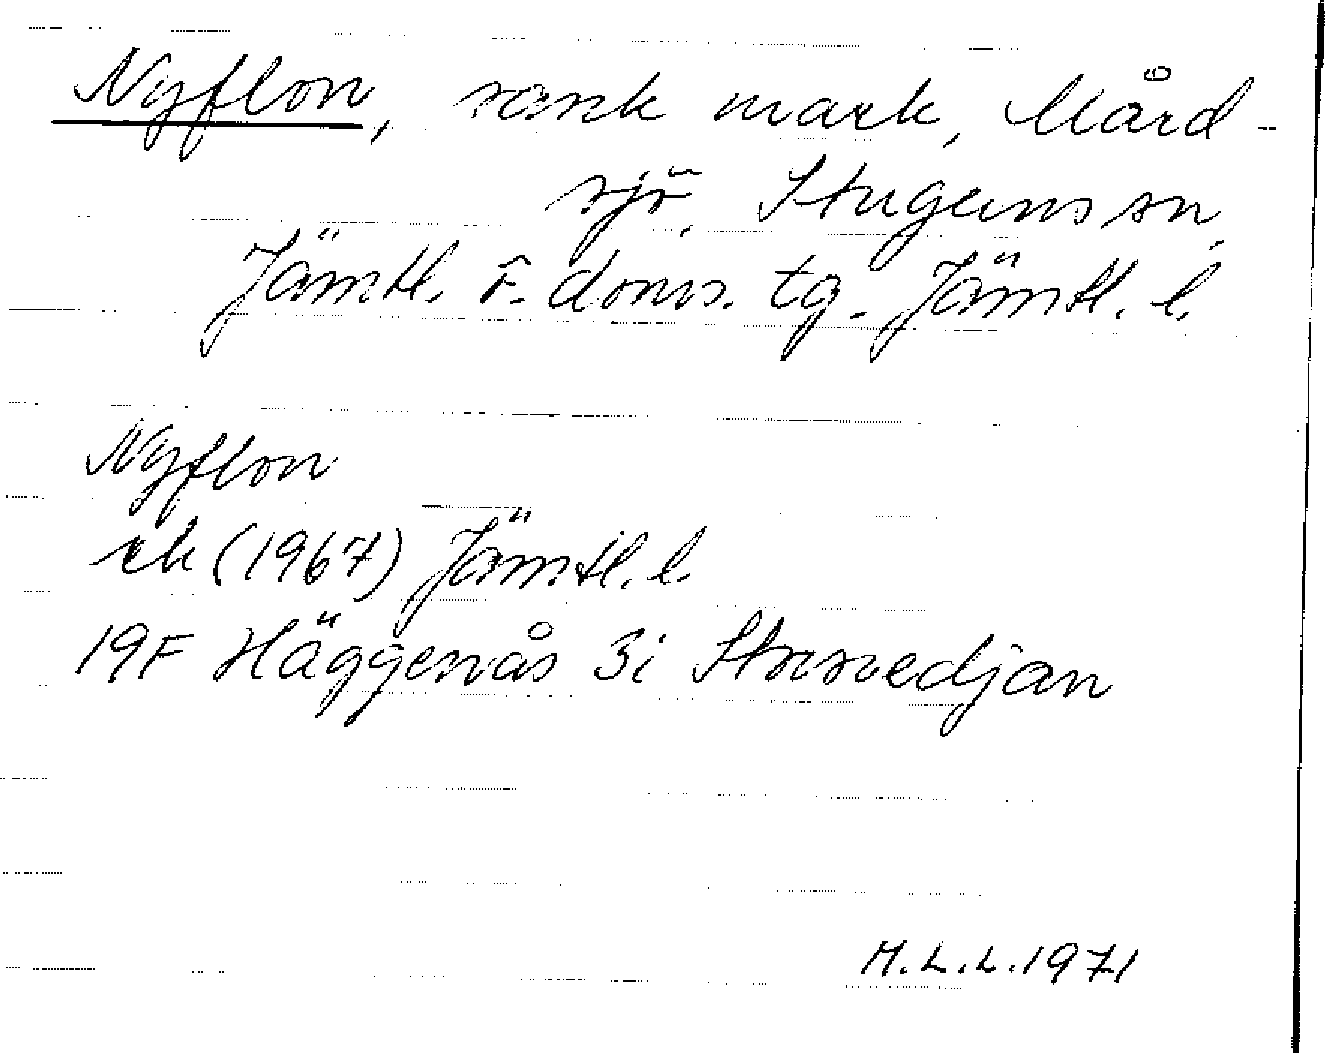 Nyflon, sank mark, Mård-
sjö, Stuguns sn,
Jämtl. ö. doms. tg. Jämtl. l.
Nyflon
ek (1967) Jämtl. l.
19F Häggenås 3i Storvedjan
M.L.L. 1971